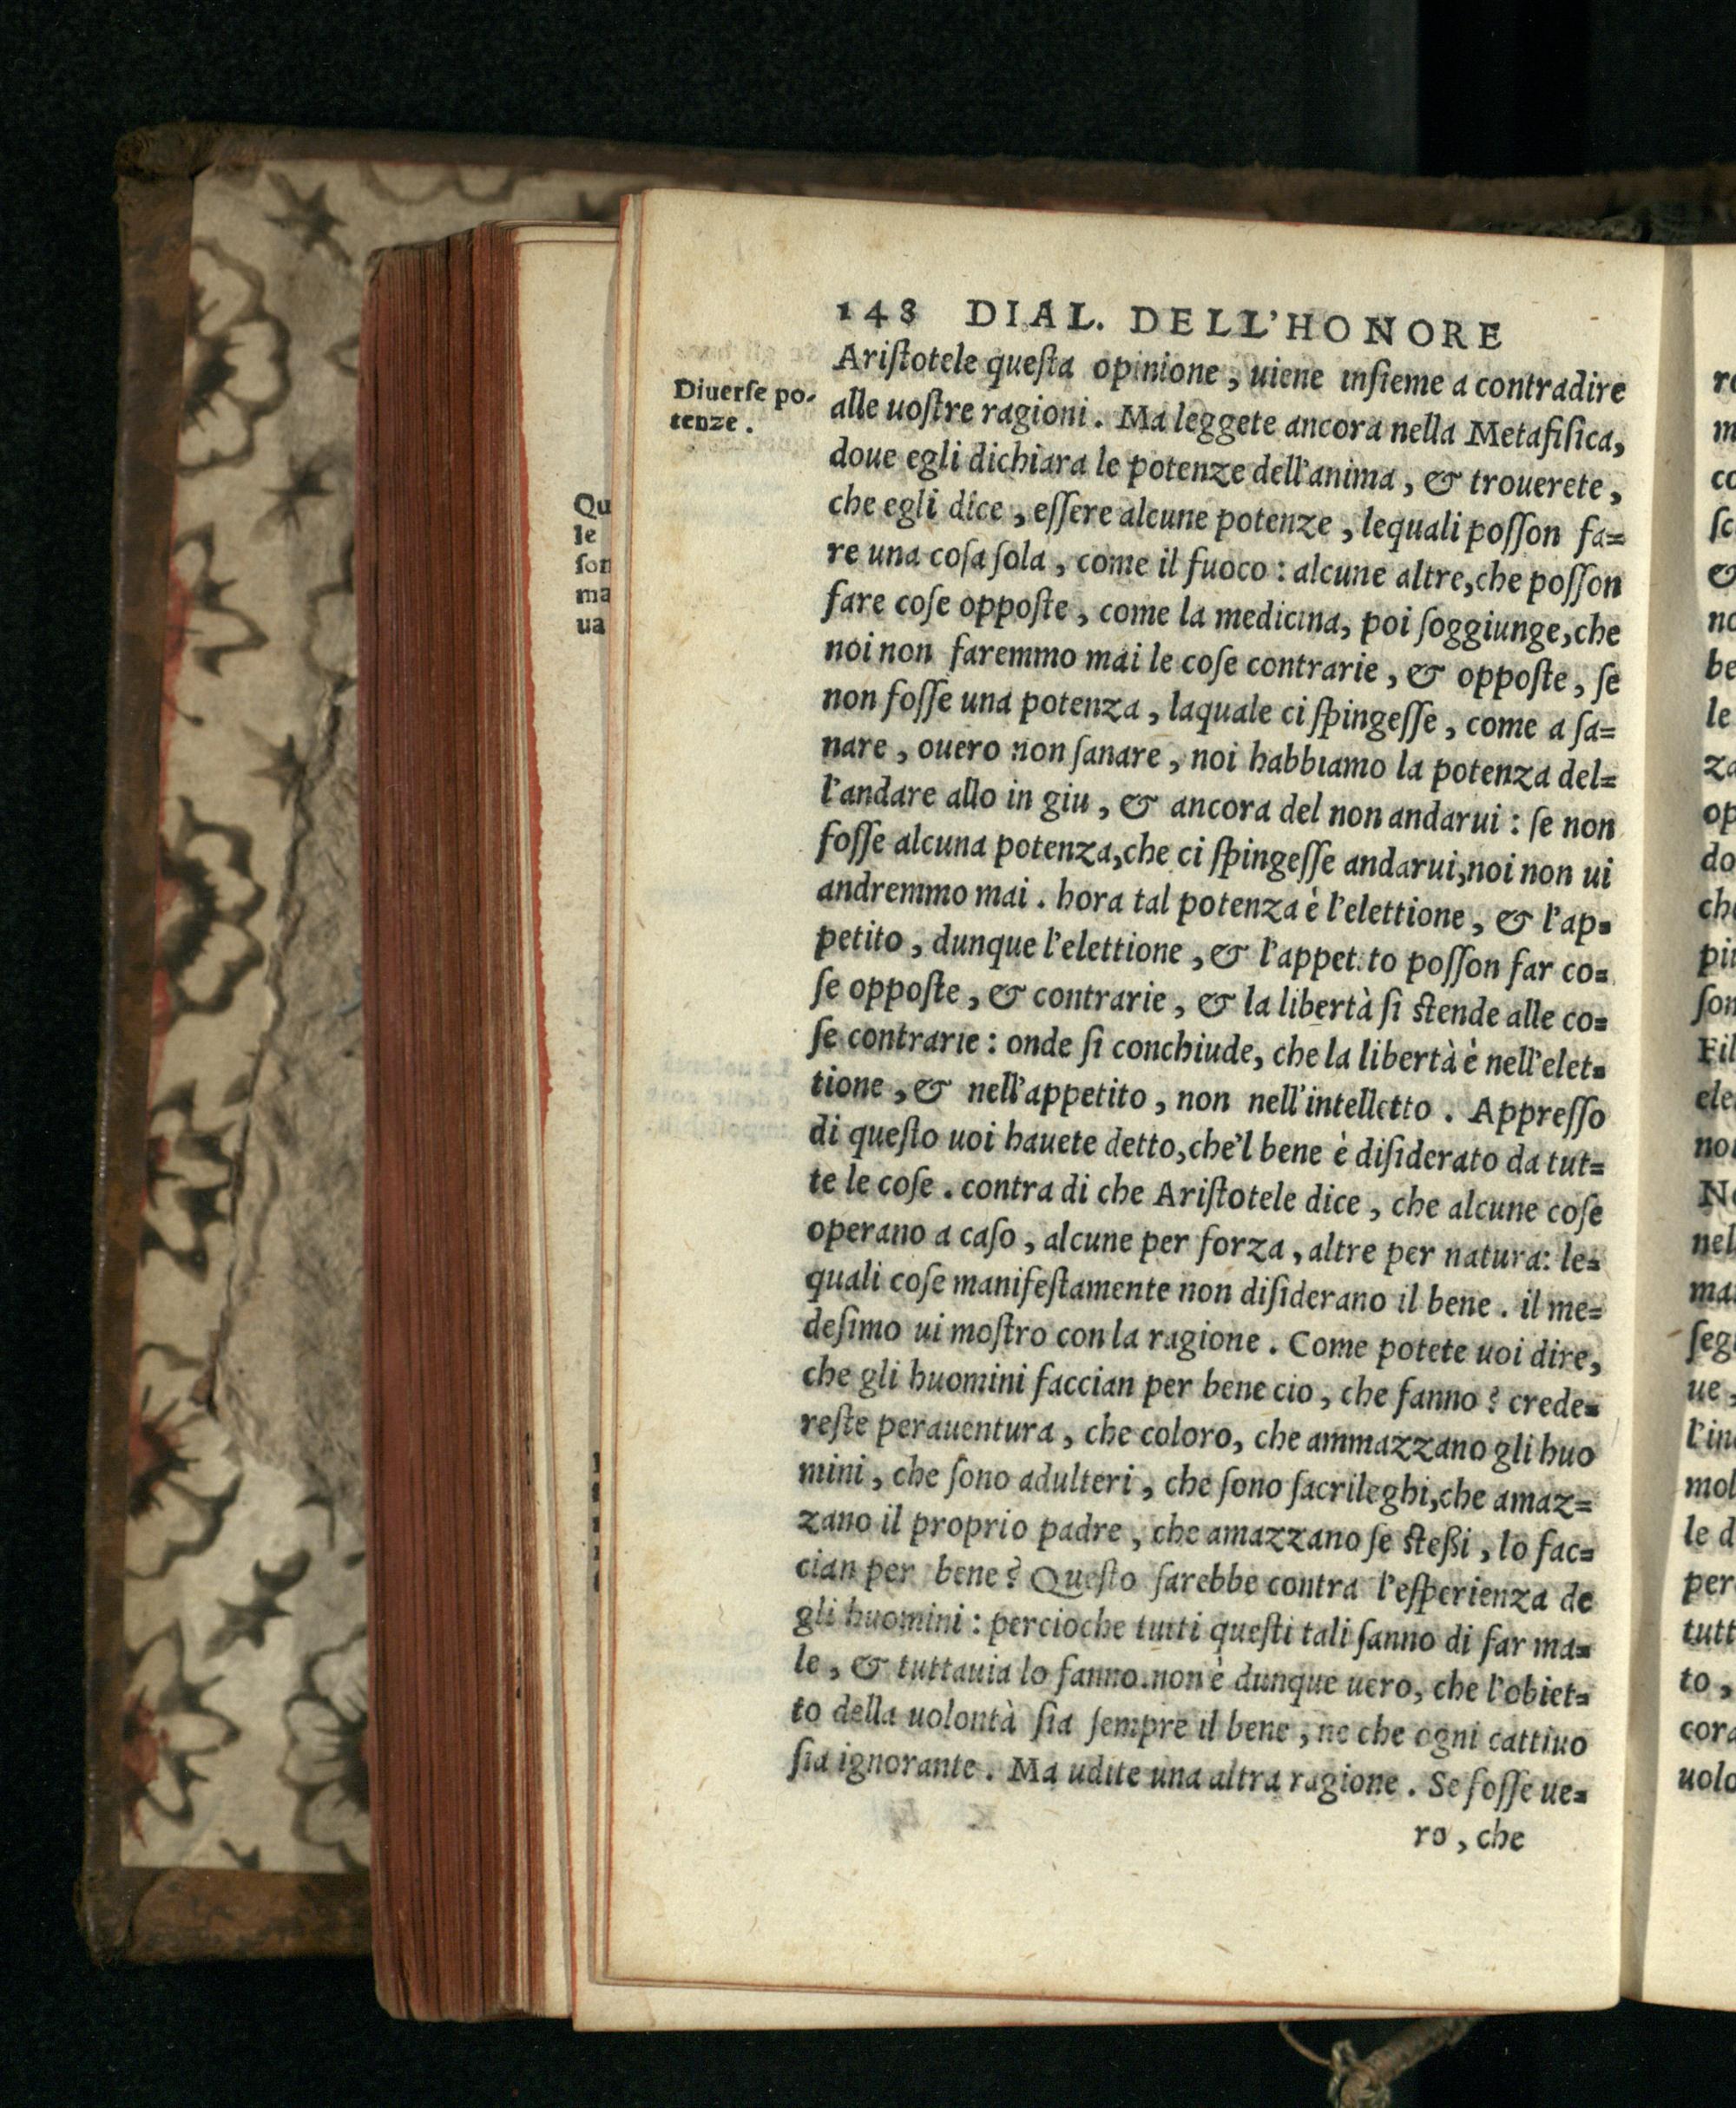 148 DIAL. DELL'HONORE
Diuerſe po-
tenze.
Ariſtotele queſta opinione, uiene inſieme a contradire
alle uoſtre ragioni. Ma leggete ancora nella Metafiſica,
doue egli dichiara le potenze dell'anima, & trouerete,
che egli dice, eſſere alcune potenze, lequali poſſon fa=
re una coſa ſola, come il fuoco: alcune altre, che poſſon
fare coſe oppoſte, come la medicina, poi ſoggiunge, che
noi non faremmo mai le coſe contrarie, & oppoſte, ſe
non foſſe una potenza, laquale ci ſpingeſſe, come a ſa=
nare, ouero non ſanare, noi habbiamo la potenza del=
l'andare allo in giu, & ancora del non andarui: ſe non
foſſe alcuna potenza, che ci ſpingeſſe andarui, noi non ui
andremmo mai. hora tal potenza è l'elettione, & l'ap=
petito, dunque l'elettione, & l'appetito poſſon far co=
ſe oppoſte, & contrarie, & la libertà ſi ſtende alle co=
ſe contrarie: onde ſi conchiude, che la libertà è nell'elet=
tione, & nell'appetito, non nell'intelletto. Appreſſo
di queſto uoi hauete detto, che'l bene è diſiderato da tut=
te le coſe. contra di che Ariſtotele dice, che alcune coſe
operano a caſo, alcune per forza, altre per natura: le=
quali coſe manifeſtamente non diſiderano il bene. il me=
deſimo ui moſtro con la ragione. Come potete uoi dire,
che gli huomini faccian per bene cio, che fanno? crede=
reſte perauentura, che coloro, che ammazzano gli huo
mini, che ſono adulteri, che ſono ſacrileghi, che amaz=
zano il proprio padre, che amazzano ſe ſteßi, lo fac=
cian per bene? Queſto ſarebbe contra l'eſperienza de
gli huomini: percioche tutti queſti tali ſanno di far ma=
le, & tuttauia lo fanno. non è dunque uero, che l'obiet=
to della uolontà ſia ſempre il bene, ne che ogni cattiuo
ſia ignorante. Ma udite una altra ragione. Se foſſe ue=
ro, che
Qu
le
ſon
ma
ua
m
co
ſc
&
no
be
le
za
op
do
che
pi
ſon
Fil
ele
non
No
nel
ma
ſeg
ue,
l'in
mol
le d
per
tutt
to,
cora
uolo